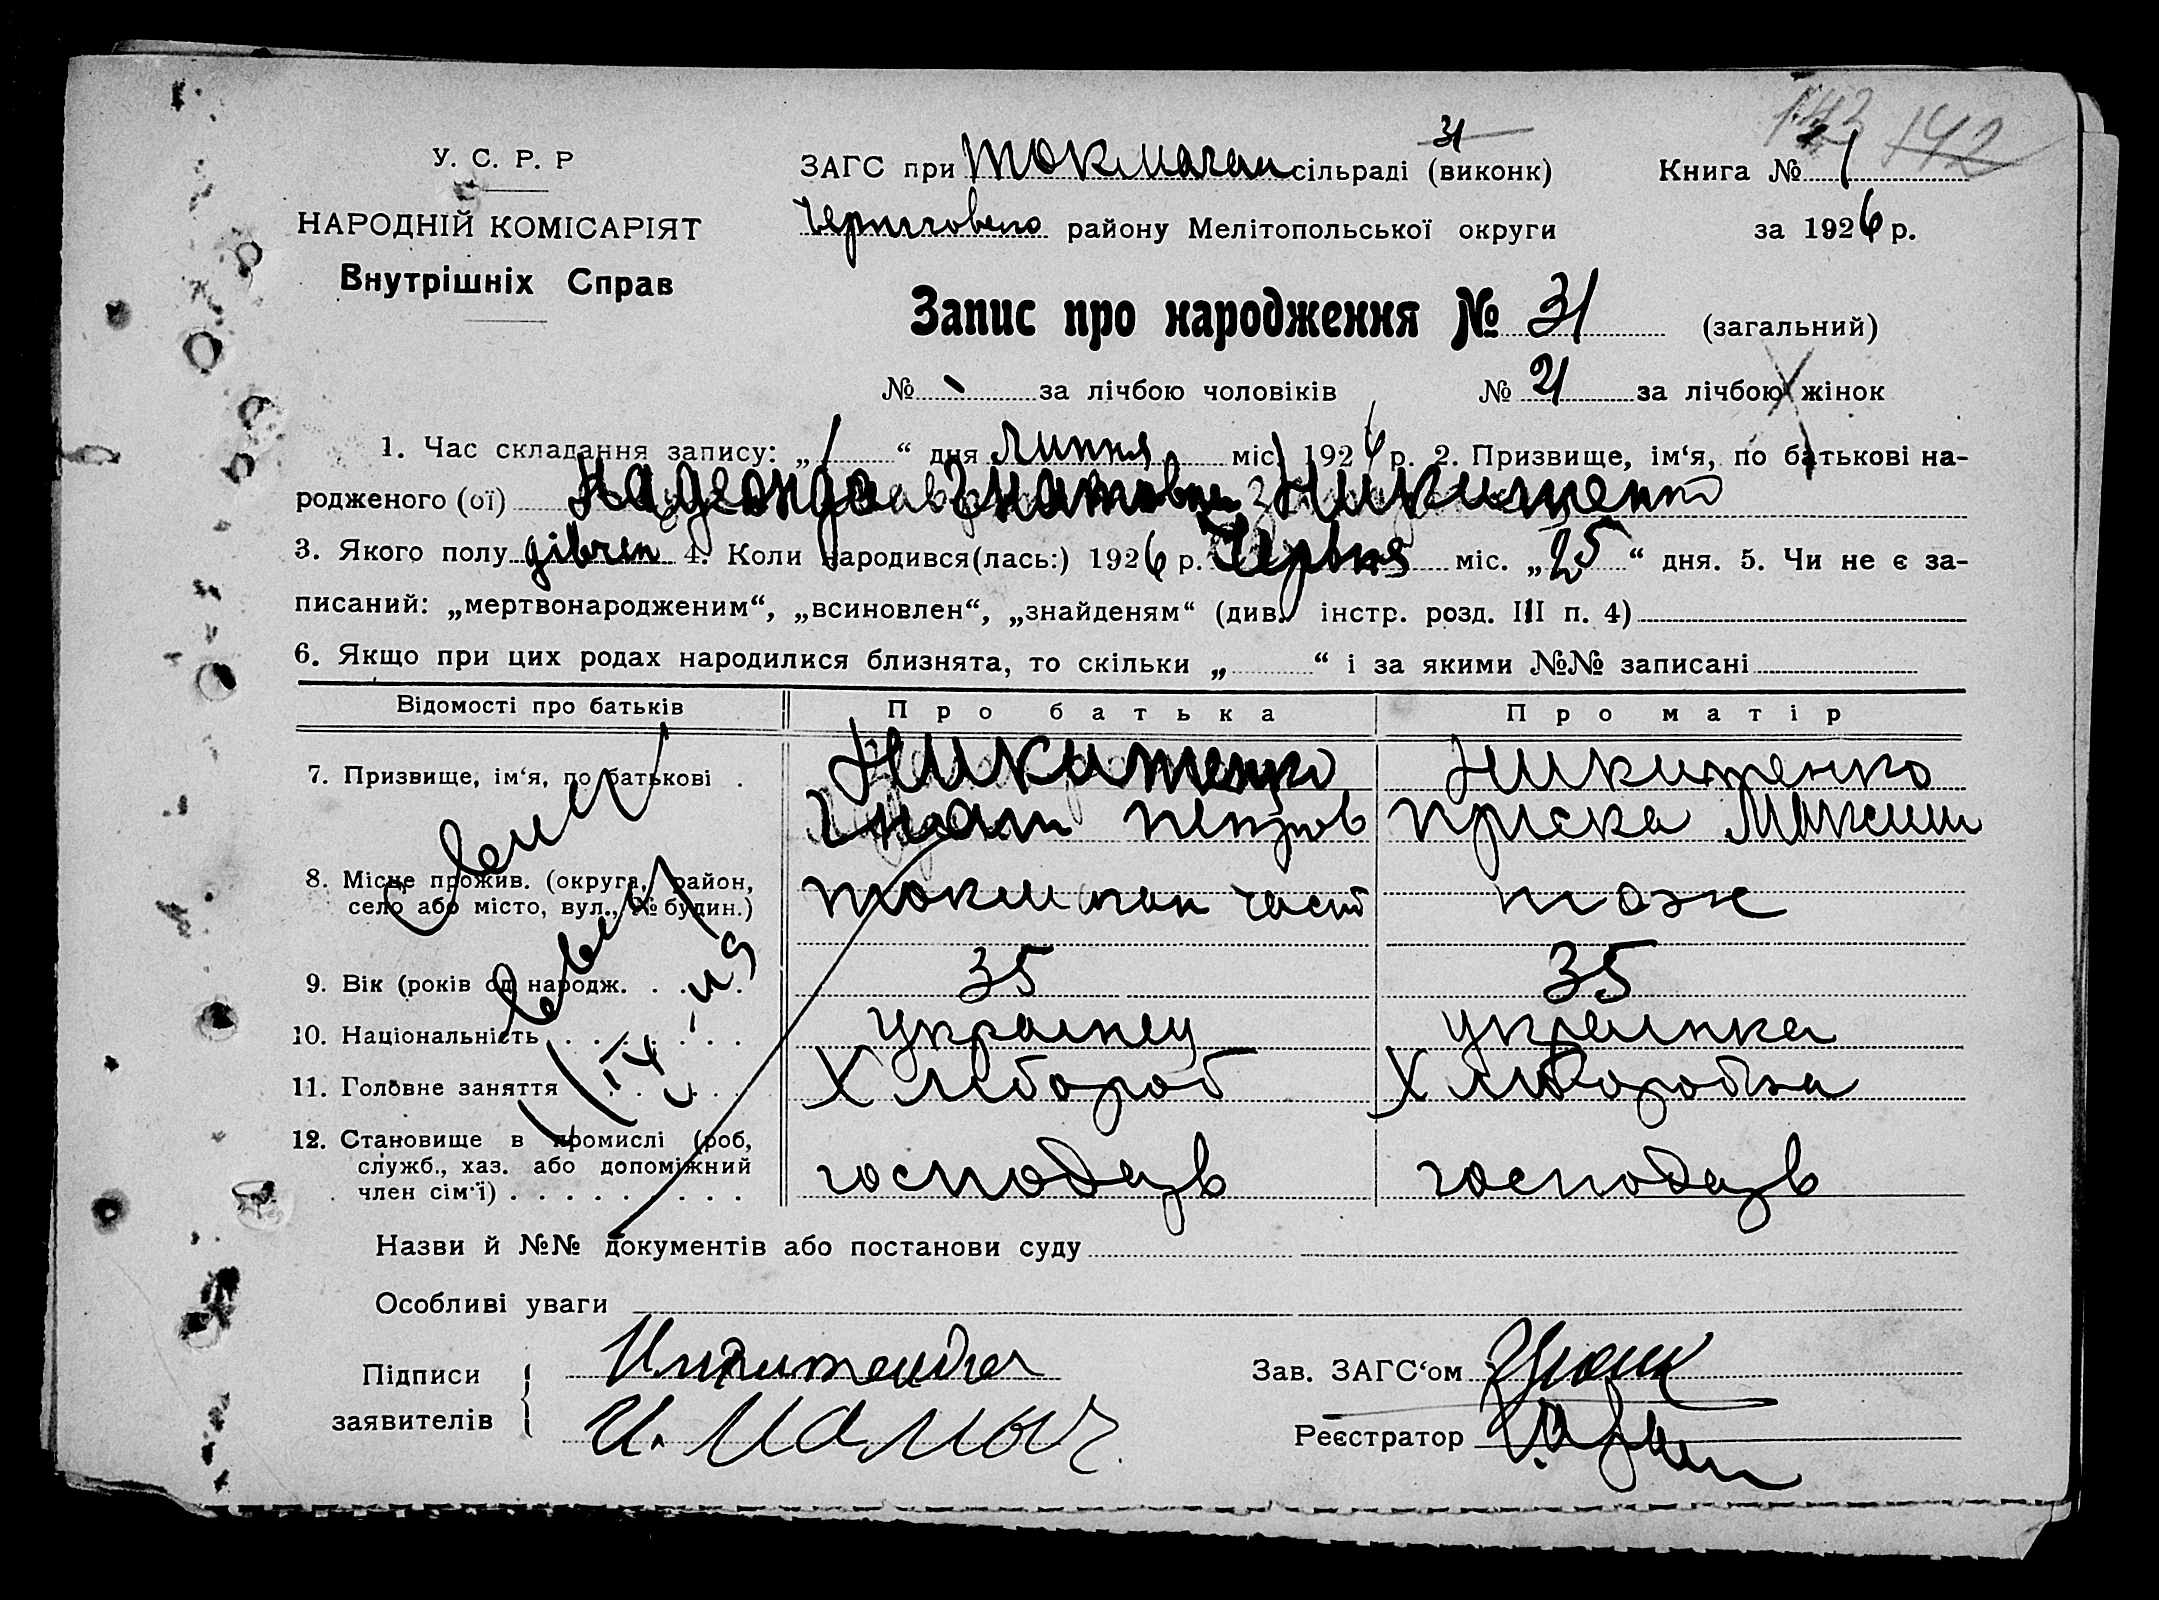 143 142
У. С. Р. Р
НАРОДНІЙ КОМІСАРІЯТ
Внутрішніх Справ
31
ЗАГС при Токмачан сільраді (виконк)
Книга № 1
Чернговсько району Мелітопольської округи
за 1926 р.
Запис про народження № 31 (загальний)
№ за лічбою чоловіків № 21 за лічбою жінок
1. Час складання запису: „1“ дня липня міс. 1926 р. 2. Призвище, ім‘я, по батькові на-
родженого (ої) Надежда Гнатовна Никитенко
3. Якого полу дівчен 4. Коли народився(лась:) 1926 р. Червня міс. „25“ дня. 5. Чи не є за-
писаний: „мертвонародженим“, „всиновлен“, „знайденям“ (див. інстр. розд. III п. 4)
6. Якщо при цих родах народилися близнята, то скільки „ “ і за якими №№ записані
Відомості про батьків Про батька Про матір
7. Призвище, ім‘я, по батькові . Никитенко Никитенко
Гнат Петров Приска Максим
8. Місце прожив. (округа, район,
село або місто, вул., № будин.) тож
9. Вік (років од народж. . . . . 35 35
10. Національність . . . . . . . Украинец украинка
11. Головне заняття . . . . . . Хлібороб Хліборобка
12. Становище в промислі (роб,
служб., хаз. або допоміжний
член сім‘ї) . . . . . . . . . господарь господарь
Назви й №№ документів або постанови суду
Особливі уваги
Підписи
заявителів
И. Малыч
Зав. ЗАГС‘ом
Реєстратор